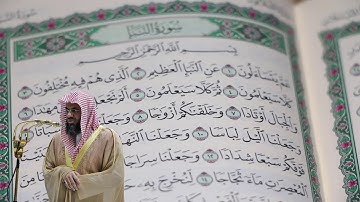 سُورَةُ النَّبَإِ
بِسْمِ اللَّهِ الرَّحْمَٰنِ الرَّحِيمِ
عَمَّ يَتَسَآءَلُونَ ١ عَنِ النَّبَإِ الْعَظِيمِ ٢ الَّذِي هُمْ فِيهِ مُخْتَلِفُونَ
كَلَّا سَيَعْلَمُونَ ٤ ثُمَّ كَلَّا سَيَعْلَمُونَ ٥ أَلَمْ نَجْعَلِ الْأَرْضَ مِهَٰدًا
وَالْجِبَالَ أَوْتَادًا ٧ وَخَلَقْنَٰكُمْ أَزْوَٰجًا ٨ وَجَعَلْنَا
وَجَعَلْنَا الَّيْلَ لِبَاسًا ١٠ وَجَعَلْنَا النَّهَارَ
فَوْقَكُمْ سَبْعًا شِدَادًا ١٢ وَجَعَلْنَا سِرَاجًا
الْمُعْصِرَٰتِ مَآءً ثَجَّاجًا ١٤ لِّنُخْرِجَ بِهِ